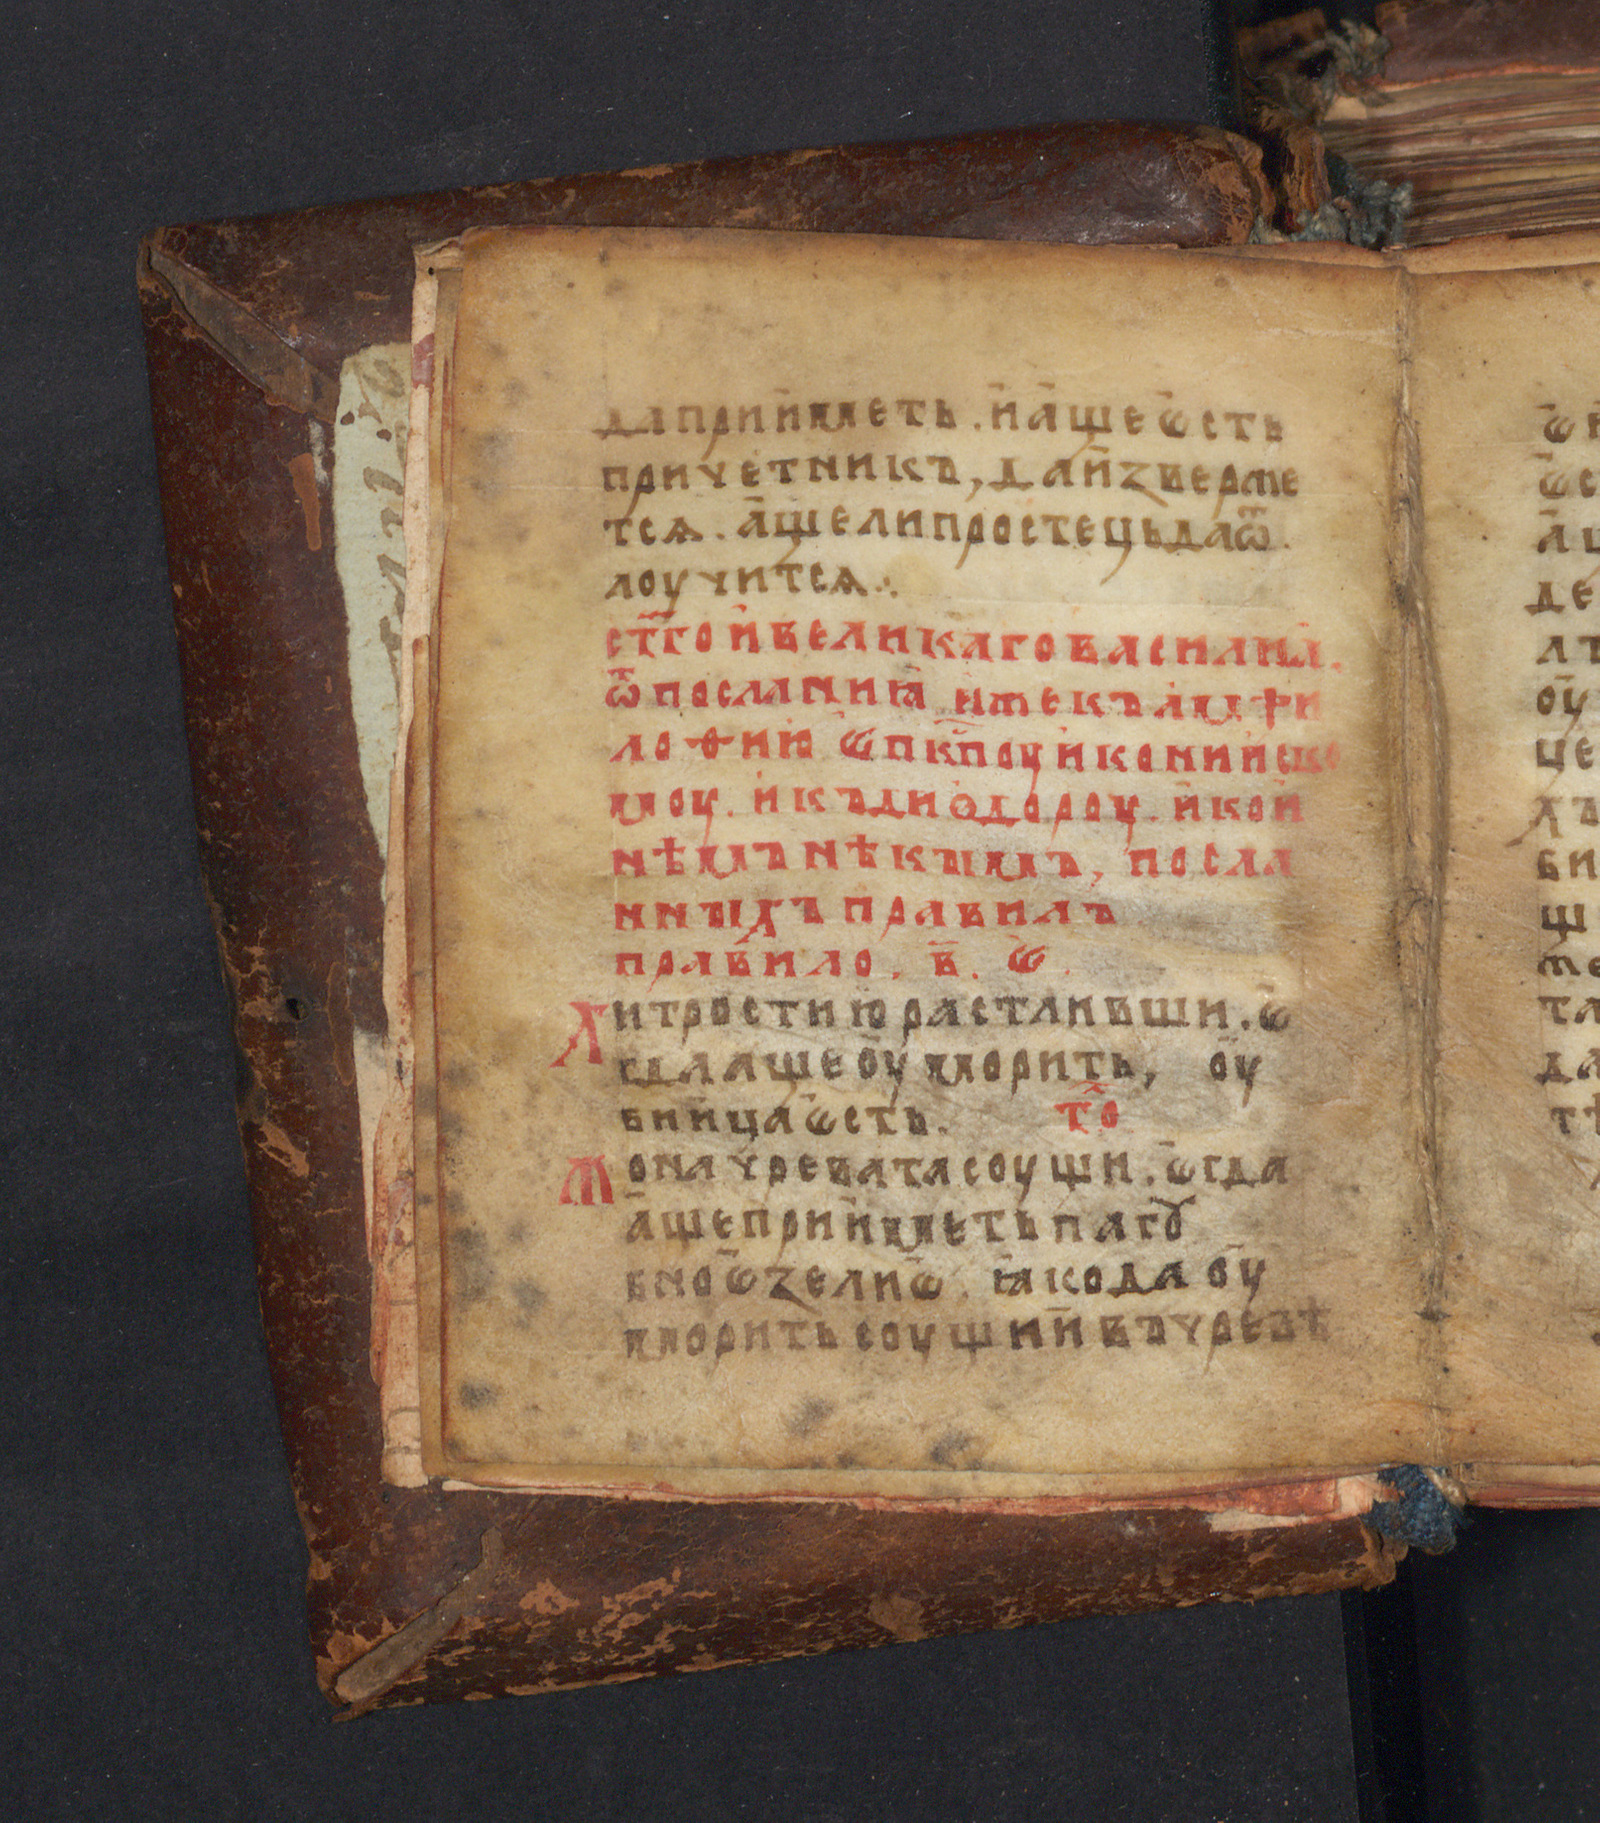 да прии́меть . и а҆ще ѥсть
причетникъ, да и҆зверже
тсѧ . а҆ще ли простець да ѿ
лоучитсѧ .:
ст҃го и҆ великаго василиꙗ .
ѿ посланиꙗ и҆же къ амфи
лофию ѥпⷭ҇кпоу и҆конийско
моу . и҆ къ диѻдороу . и҆ ко и҆
нѣмъ нѣкымъ, посла
нныхъ правилъ
правило . в҃ . ѥ .
Хитростию растливши . ѥ
гда а҆ще оу҆морить, оу҆
бийца ѥсть . то҃
Жона чревата соущи . ѥгда
а҆ще прии́меть пагꙋ
бноѥ зелиѥ . ꙗко да оу҆
морить соущии въ чревѣ
ѥ
ѥс
а҆щ
де
лъ
оу҆
це
хъ
би
щ
же
та
да
тѣ